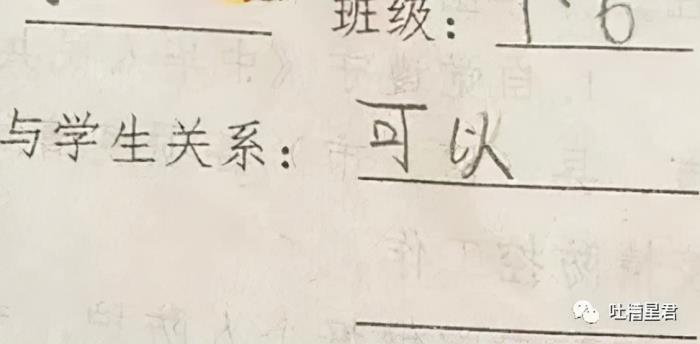 班级：1.6
与学生关系：可以
吐槽星君